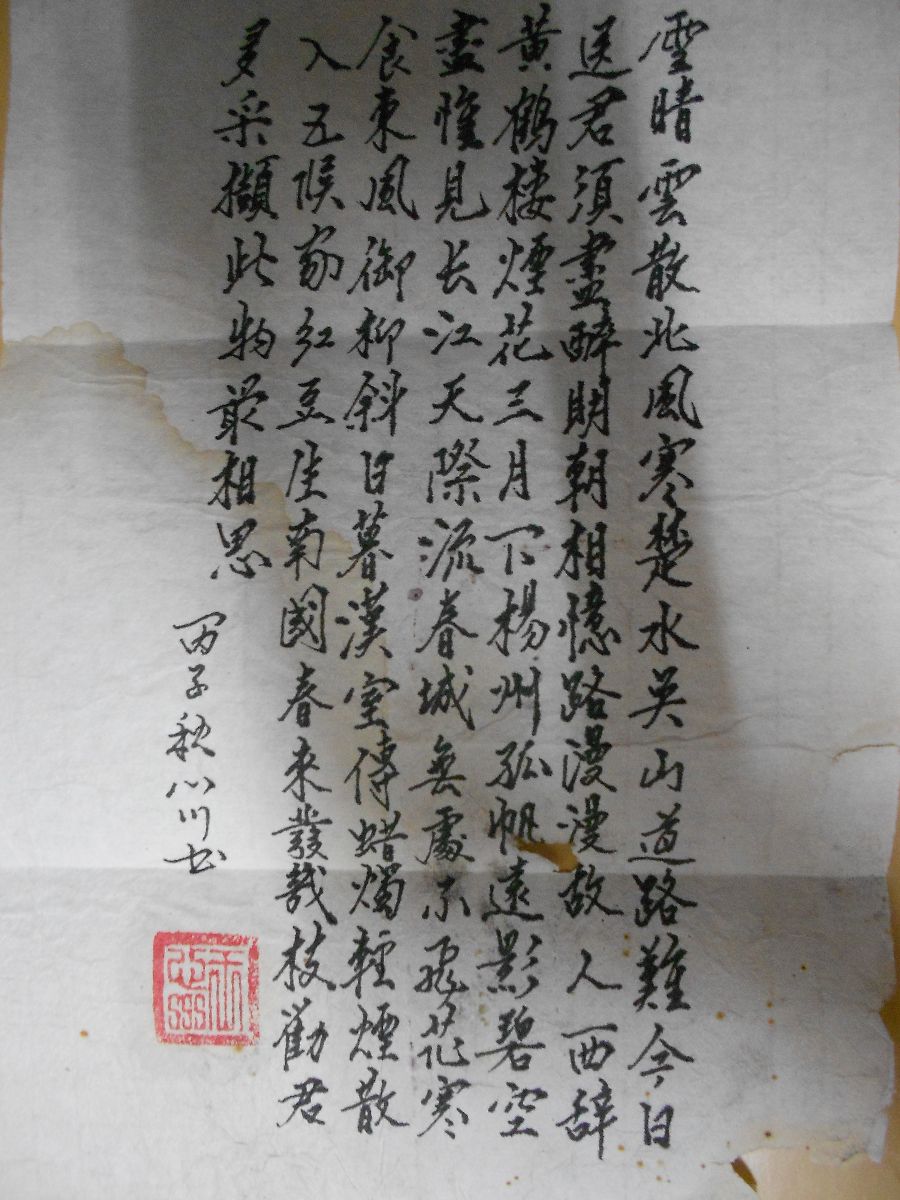 雪晴雲散北風寒楚水吳山道路難今日
送君須盡醉明朝相憶路漫漫故人西辞
黄鶴楼煙花三月下楊州孤帆遠影碧空
盡惟見长江天際流春城無處不飛花寒
食東風御柳斜日暮漢宫傳蜡燭輕煙散
入五侯家红豆生南國春来發幾枝勸君
多采擷此物最相思
丙子秋心川书